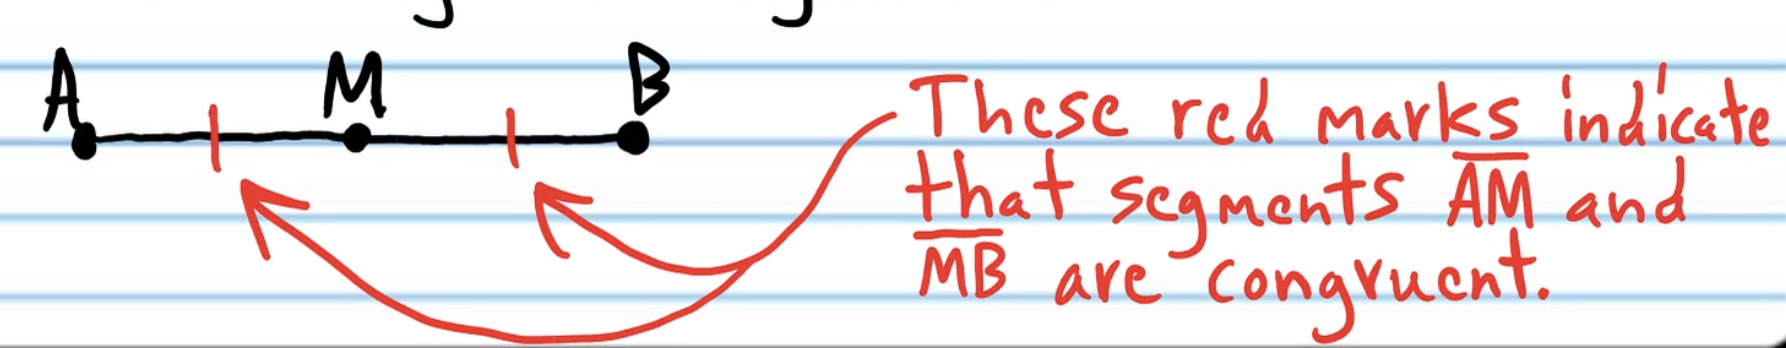 A M B
These red marks indicate
that segments A̅M̅ and
M̅B̅ are congruent.